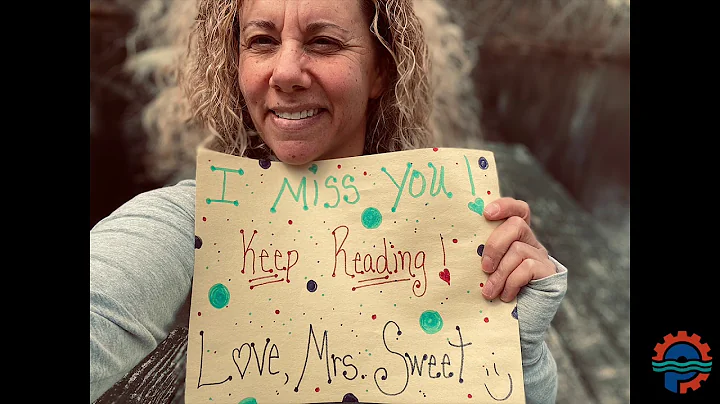 I miss you!
Keep Reading!
Love, Mrs. Sweet :)